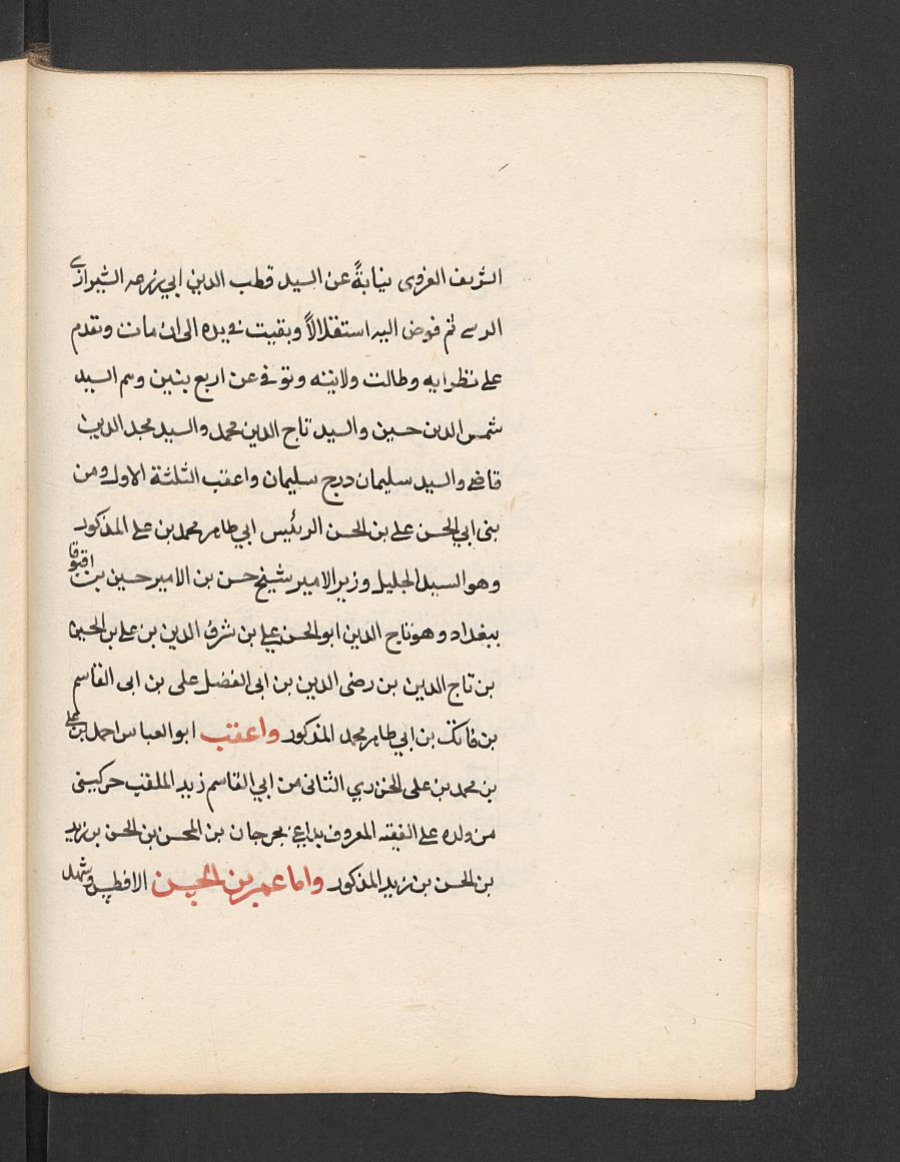 الشريف الغروى نيابةً عن السيد قطب الدين ابي زرعه الشيرازي
الرسى ثم فوض اليه استقلالاً وبقيت في يده الى ان مات وتقدم
على نظرايه وطالت ولايته وتوفي عن اربع بنين وهم السيد
شمس الدين حسين والسيد تاج الدين محمد والسيد مجد الدين
قاضى والسيد سليمان درج سليمان واعقب الثلثة الاول ومن
بنى ابي الحسن على بن الحسن الرئيس ابي طاهر محمد بن على المذكور
وهو السيد الجليل وزير الامير شيخ حسن بن الامير حسين بن اقبوقا
ببغداد وهو تاج الدين ابو الحسن علي بن شرف الدين بن على بن الحسين
بن تاج الدين بن رضى الدين بن ابى الفضل على بن ابى القاسم
بن فاتك بن ابي طاهر محمد المذكور واعقب ابو العباس احمد بن على
بن محمد بن على الخزري الثانى من ابي القاسم زيد الملقب حركينى
من ولده على الفقيه المعروف بداعي بجرجان بن المحسن بن الحسن بن زيد
بن الحسن بن زيد المذكور واما عمر بن الحسن الافطس وشهد